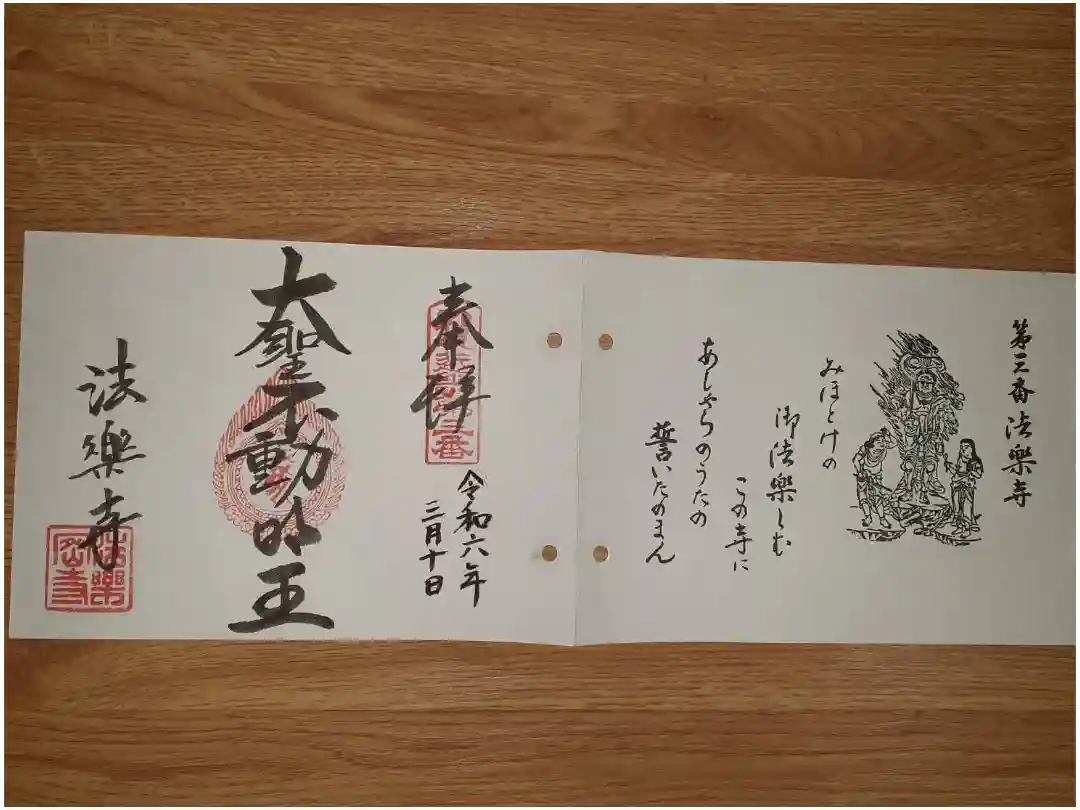 第三番法樂寺
みほとけの
御法樂しむ
この寺に
あじやらのうたの
誓いたのまん
奉拝
第三番
令和六年
三月十日
大聖不動明王
法樂寺